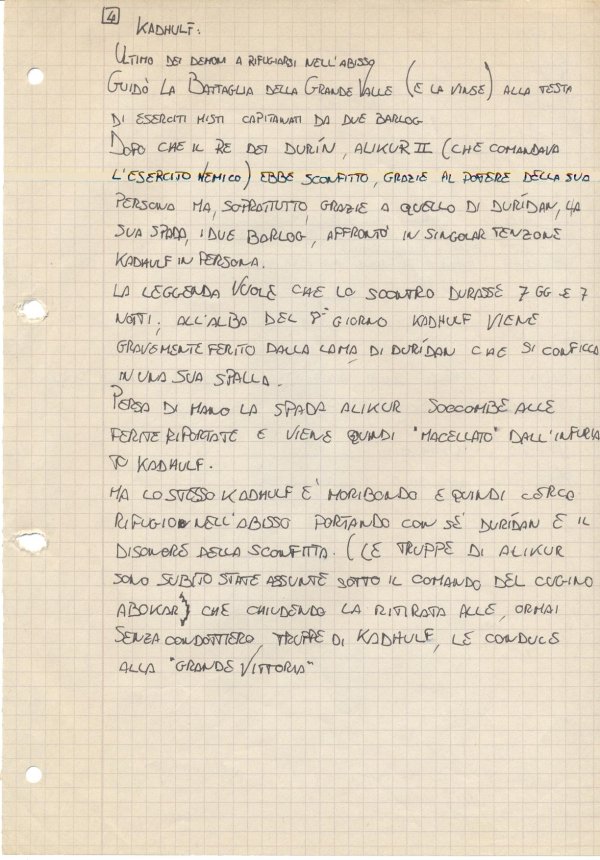 4
KADHULF:
ULTIMO DEI DEMONI A RIFUGIARSI NELL'ABISSO
GUIDÒ LA BATTAGLIA DELLA GRANDE VALLE (E LA VINSE) ALLA TESTA
DI ESERCITI MISTI CAPITANATI DA DUE BARLOG
DOPO CHE IL RE DEI DURÍN, ALIKUR II (CHE COMANDAVA
L'ESERCITO NEMICO) EBBE SCONFITTO, GRAZIE AL POTERE DELLA SUA
PERSONA MA, SOPRATTUTTO, GRAZIE A QUELLO DI DURÍDAN, LA
SUA SPADA, I DUE BARLOG, AFFRONTÒ IN SINGOLAR TENZONE
KADHULF IN PERSONA.
LA LEGGENDA VUOLE CHE LO SCONTRO DURASSE 7 GG E 7
NOTTI; ALL'ALBA DEL 8° GIORNO KADHULF VIENE
GRAVEMENTE FERITO DALLA LAMA DI DURÍDAN CHE SI CONFICCA
IN UNA SUA SPALLA.
PERSA DI MANO LA SPADA ALIKUR SOCCOMBE ALLE
FERITE RIPORTATE E VIENE QUINDI "MACELLATO" DALL'INFURIA
TO KADHULF.
MA LO STESSO KADHULF E' MORIBONDO E QUINDI CERCA
RIFUGIO NELL'ABISSO PORTANDO CON SÉ DURÍDAN E IL
DISONORE DELLA SCONFITTA. (LE TRUPPE DI ALIKUR
SONO SUBITO STATE ASSUNTE SOTTO IL COMANDO DEL CUGINO
ABOKAR) CHE CHIUDENDO LA RITIRATA ALLE, ORMAI
SENZA CONDOTTIERO, TRUPPE DI KADHULF, LE CONDUCE
ALLA "GRANDE VITTORIA"